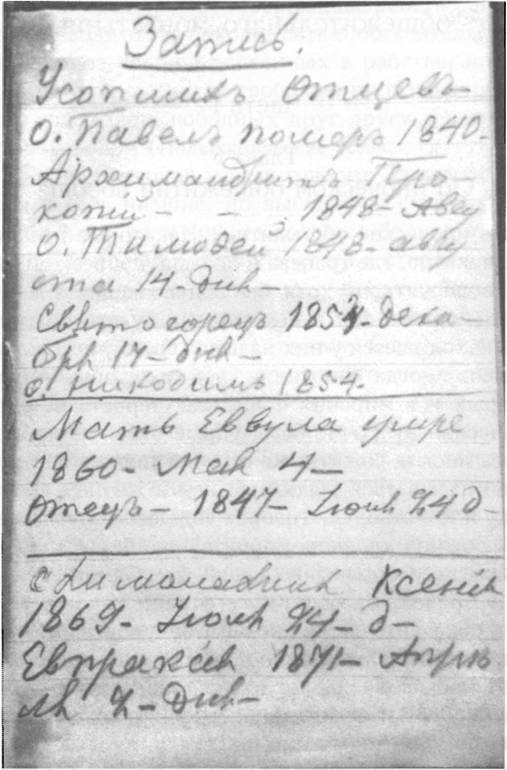 Запись.
Усопшихъ Отцевъ
О. Павелъ померъ 1840-
Архимандритъ Про-
копій - - 1848- Авгу
О. Тимофей 1848- авгу
ста 14- дня-
Святогорецъ 1853- дека-
бря 17- дня-
о. Никодимъ 1854.
Мать Еввула умре
1860- Мая 4-
Отецъ- 1847- Іюня 24 д-
Схимонахиня Ксенія
1869- Іюня 24- д-
Евпраксія 1871- Апрѣ
ля 2- дня-